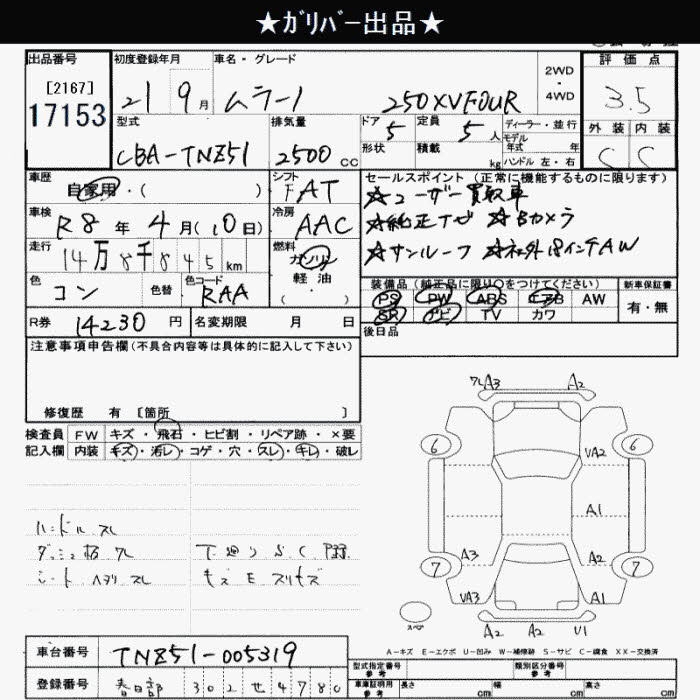 ★ガリバー出品★
出品番号 初度登録年月 車名・グレード 2WD・4WD 評価点
[2167]
17153
21 9月 ムラーノ 250XVFOUR 3.5
型式 排気量 ドア 定員 ディーラー・並行 外装 内装
CBA-TNZ51 2500cc 5 5人 モデル年式 年 C C
形状 積載 kg ハンドル 左・右
車歴 シフト セールスポイント(正常に機能するものに限ります)
自家用・( ) FAT ☆ユーザー買取車
車検 冷房 ☆純正ナビ ☆Bカメラ
R8年4月(10日) AAC ☆サンルーフ ☆社外18インチAW
走行 燃料
14万8千845km ガソリン
軽油
( ・ )
色 色替 色コード 装備品(純正品に限り○をつけてください) 新車保証書
コン RAA PS PW ABS エアB AW 有・無
SR ナビ TV カワ
R券 14230円 名変期限 月 日 後日品
注意事項申告欄(不具合内容等は具体的に記入して下さい)
修復歴 有 [箇所 ]
検査員 FW キズ・飛石・ヒビ割・リペア跡・×要
記入欄 内装 キズ・汚レ・コゲ・穴・スレ・キレ・破レ
A3 A2
6 6
VA2
A1
A3 A2
7 7
VA3 A1
スペア
A2 A2 U1
ハンドル スレ
ダッシュ板 クレ 下廻り S C
シート ヘタリ スレ キズ E スリキズ
A-キズ E-エクボ U-凹み W-補修跡 S-サビ C-腐食 XX-交換済
車台番号 TNZ51-005319
型式指定番号 参考 類別区分番号 参考
登録番号 春日部 302 せ 4780
車庫証明用 参考 長さ cm 幅 cm 高さ cm